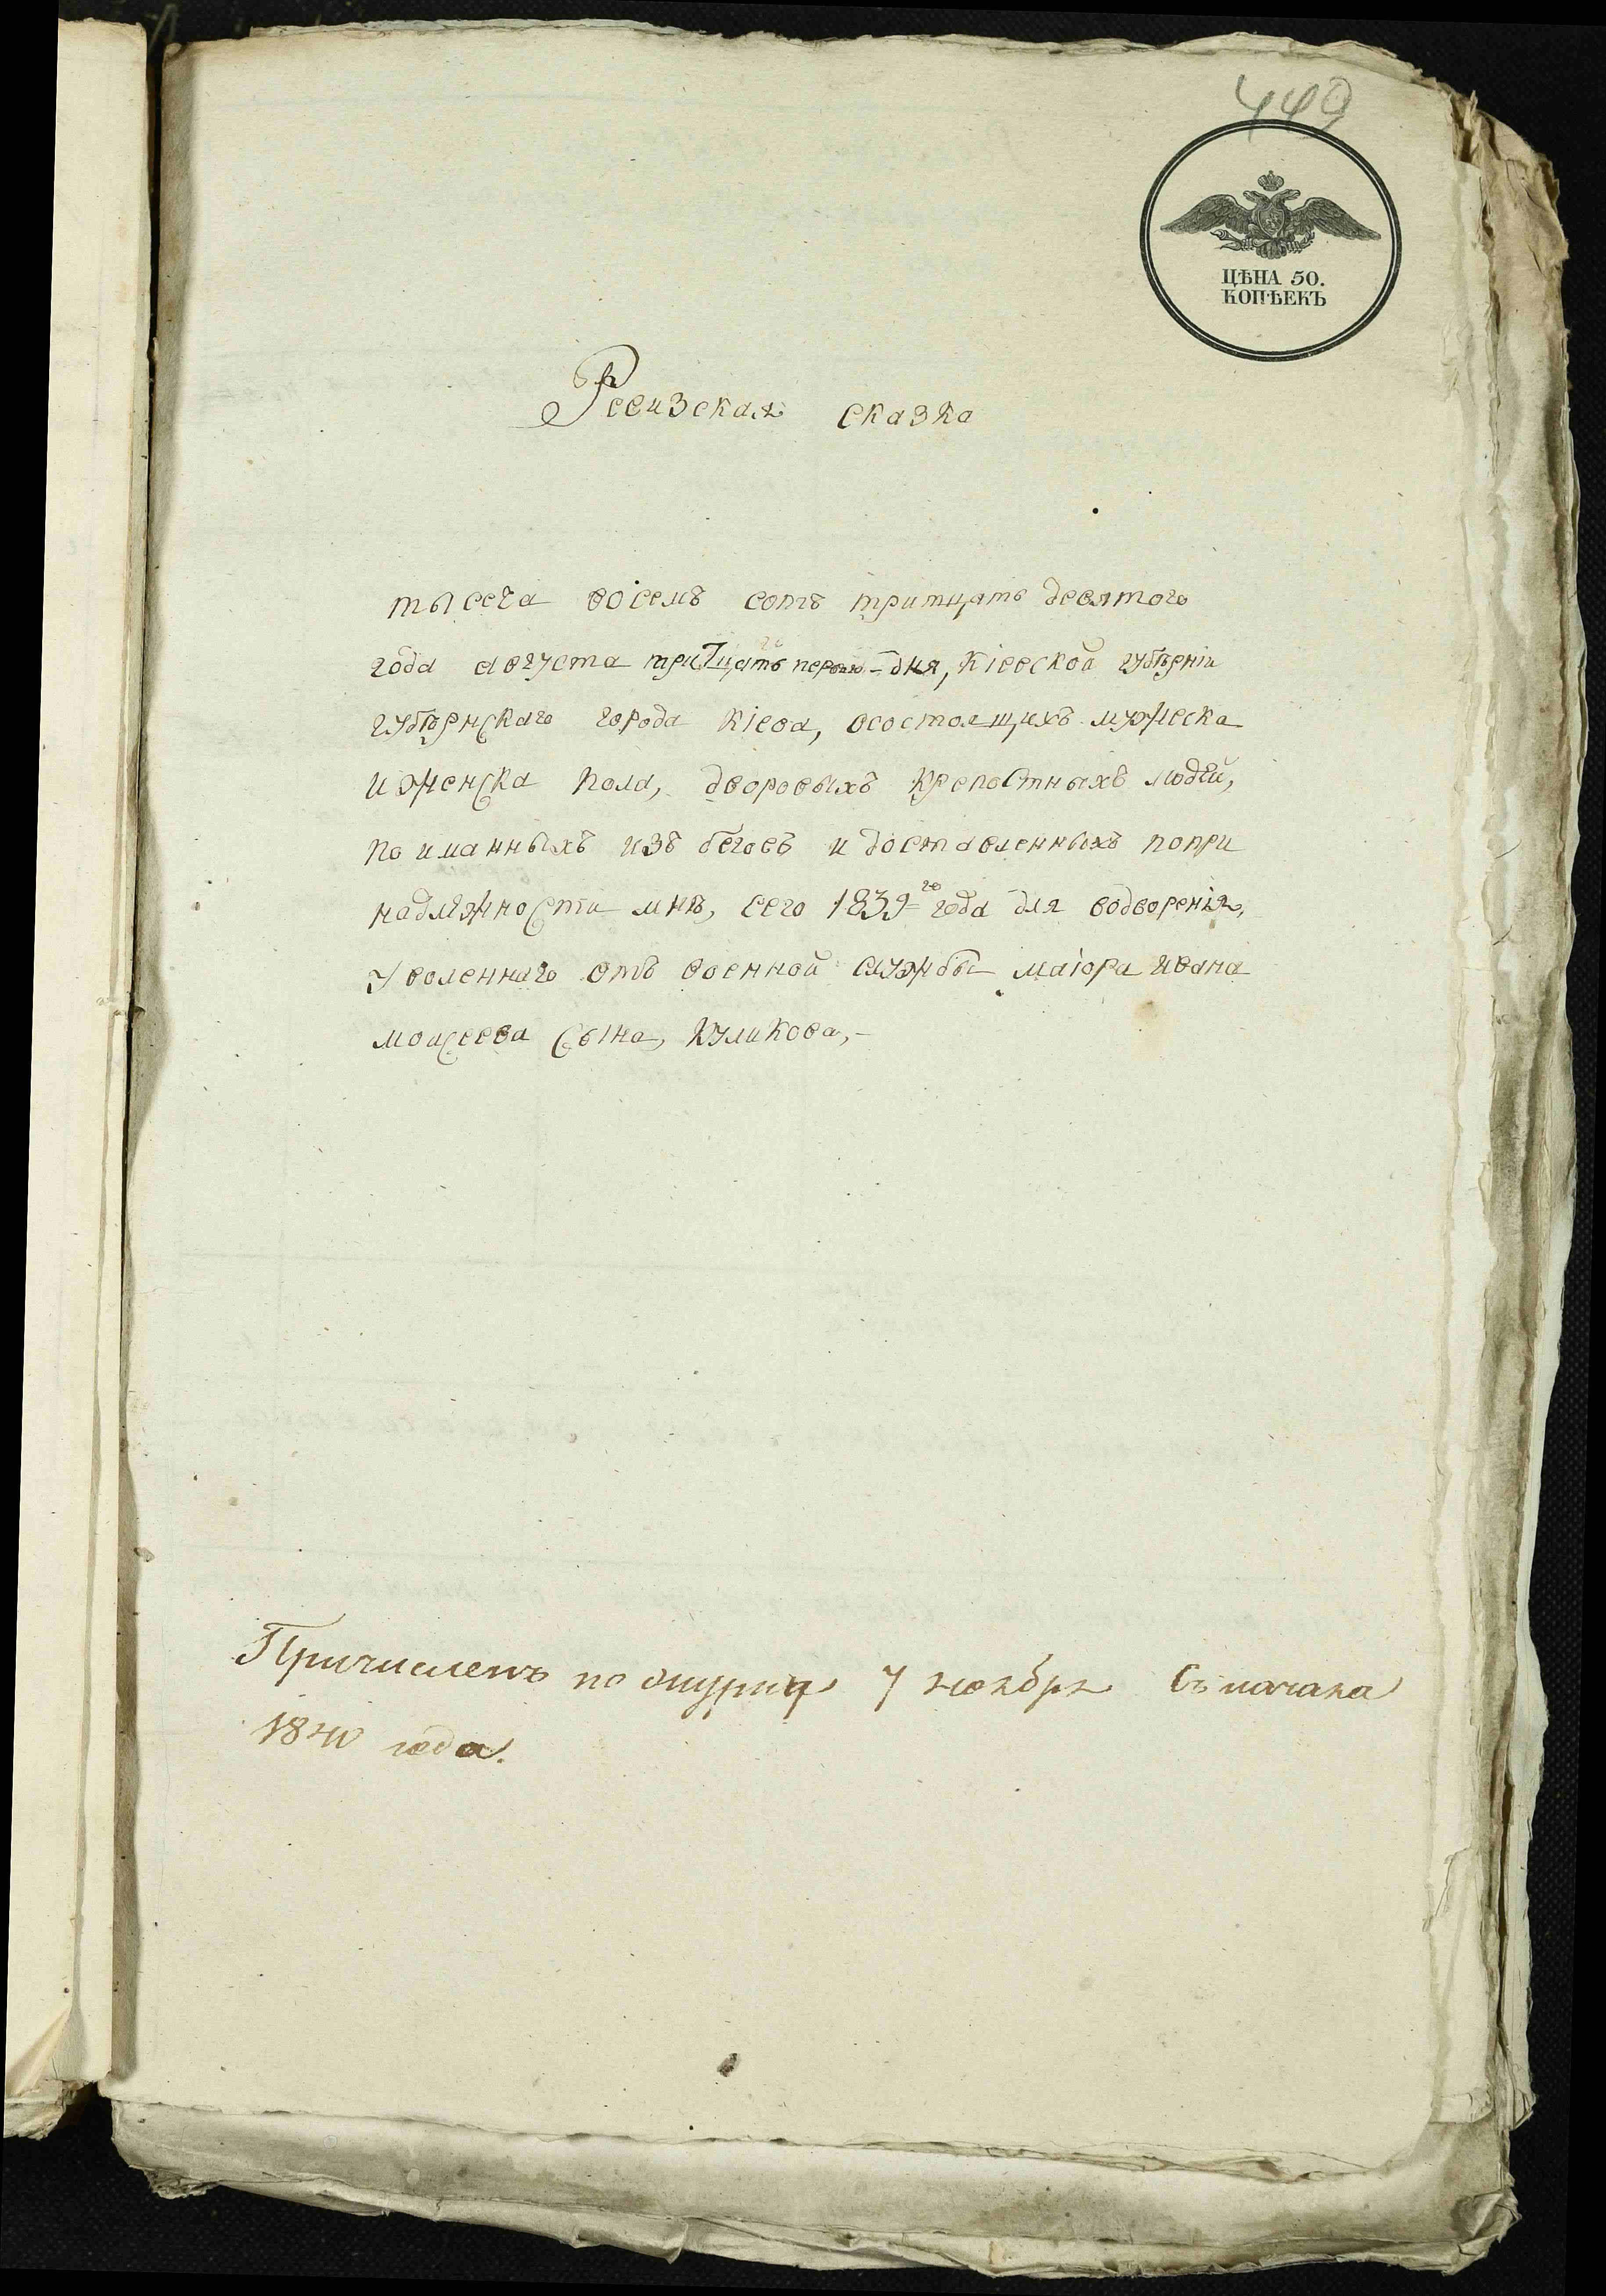 449
ЦѢНА 50.
КОПѢЕКЪ
Ревизская сказка
тысеча восемъ сотъ тритцать девятого
года августа тритцать первого дня, Кіевской губѣрніи
губѣрнскаго города Кіева, осостоящихъ мужеска
и женска пола, дворовыхъ крепостныхъ людей,
поиманныхъ изъ бѣговъ и доставленныхъ попри
надлѣжности мнѣ, сего 1839го года для водворенія,
уволеннаго отъ военной службы маіора ивана
моисеева сына, куликова,-
Причисленъ по журналу 7 ноября Съ начала
1840 года.